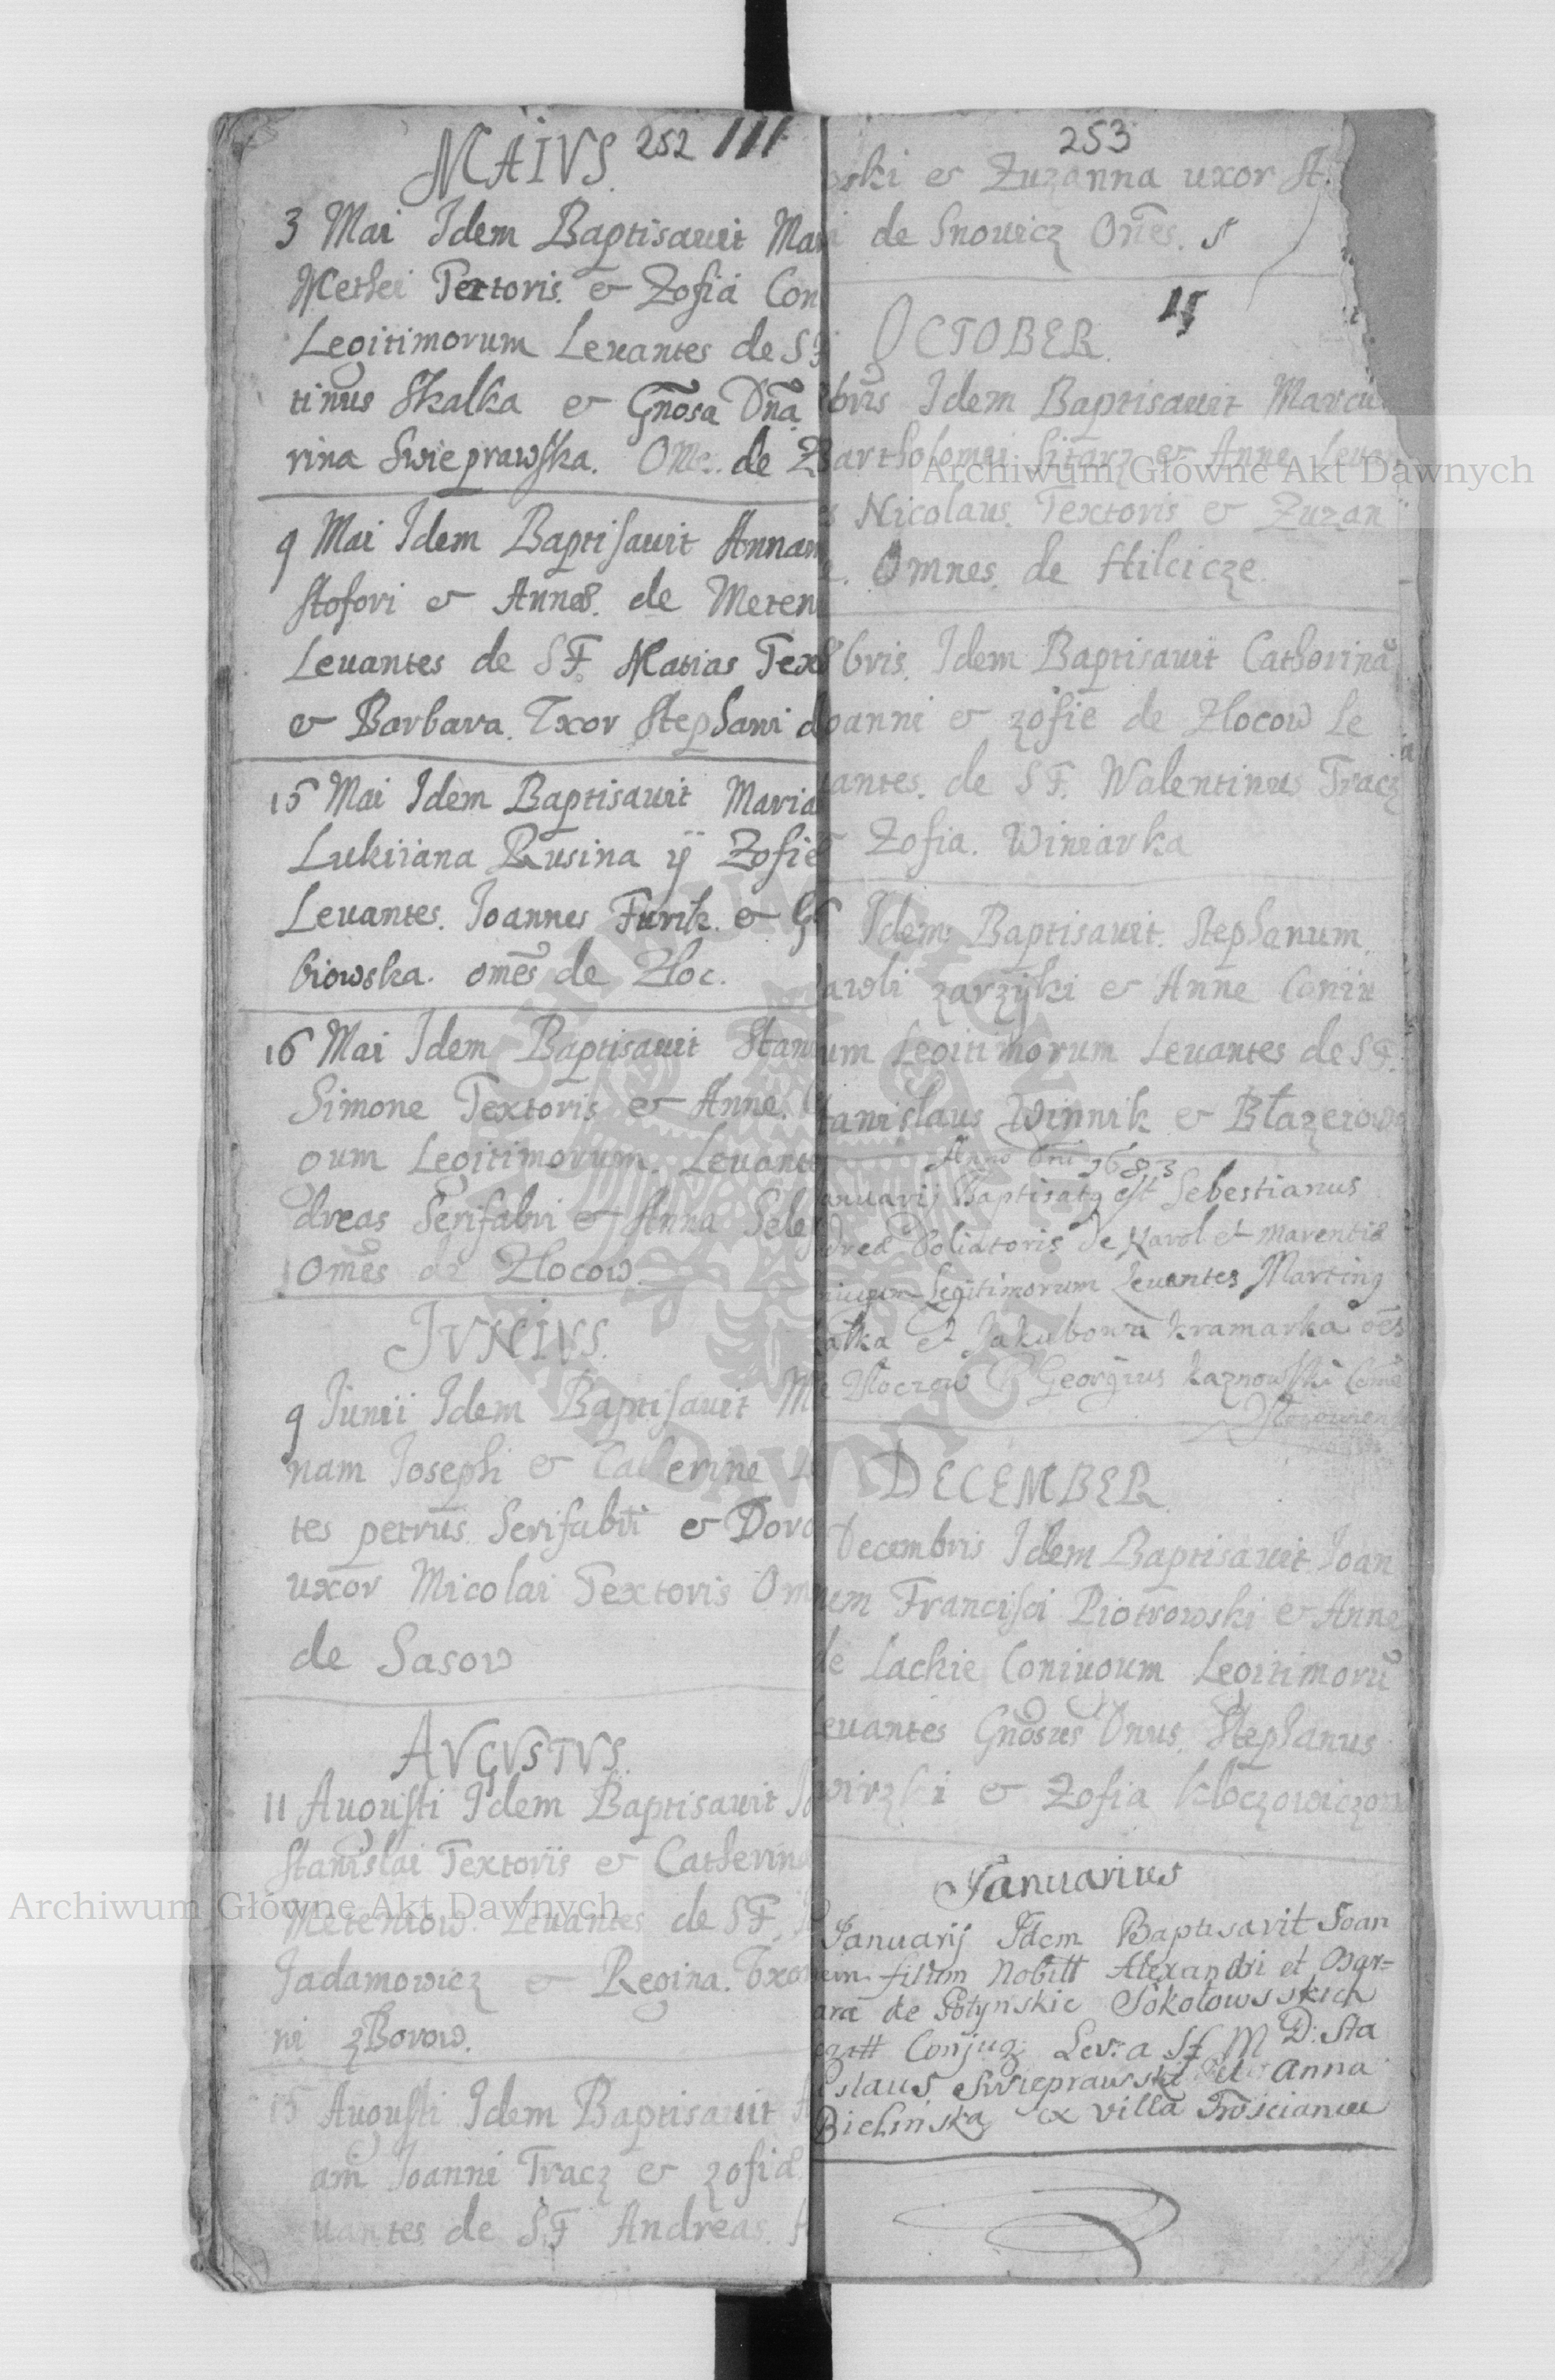 MAIVS. 252 111
3 Mai Idem Baptisauit Mari
Methei Textoris. & Zofiá Con
Legitimorum Leuantes de SF
tinus Skalka & Gnosa Dna
rina Swieprawska. Omes. de Z
9 Mai Idem Baptisauit Annam
stofori & Annae. de Meten
Leuantes de SF. Matias Tex
& Barbara. Vxor Stephani d
15 Mai Idem Baptisauit Maria
Lukiiana Rusina ÿ Zofie
Leuantes. Joannes Furik. & G
biowska. omes de Zloc.
16 Mai Idem Baptisauit Stani
Simone Textoris & Anne. C
gum Legitimorum. Leuante
dreas Serifabri & Anna Sele
Omes de Zlocow
IVNIVS.
9 Junii Idem Baptisauit M
nam Joseph & Catherine
tes petrus Serifabri & Doro
uxor Micolai Textoris Om
de Sasow
AVGVSTVS.
11 Augusti Idem Baptisauit Jo
Stanislai Textoris & Catherina
Meteniow Leuantes de SF.
Jadamowicz & Regina. Vxor
ni zBorow.
15 Augusti Idem Baptisauit
am Joanni Tracz & zofiae
uantes de S.F Andreas.
253
wski & Zuzanna uxor St.
de Snowicz Omes. S
15
OCTOBER.
bris Idem Baptisauit Marcu
Bartholomei Sitarz & Anne Leuan
s Nicolaus. Textoris & Zuzan
Omnes. de Hilcicze.
8bris. Idem Baptisauit Catherinã
oanni & zofie de Zlocow Le
uantes. de SF. Walentinus Tracz
& Zofia. Winiarka
6 Idem Baptisauit. Stephanum
awli zarzÿki & Anne Coniu
um Legitimorum Leuantes de SF.
tanislaus Winnik & Błazeiowa
Anno Dni 1683
anuarij Baptisatq est Sebestianus
drea Doliatoris de Karol et Marentiæ
niugum Legitimorum Leuantes Martinq
kałka et Jakubowa kramarka oēs
e Złoczow P Georgius kaznowski Come
DECEMBER
Decembris Idem Baptisauit Joan
nem Francisci Piotrowski & Anne
de Lackie Coniugum Legitimorũ
Leuantes Gnosus Dnus. Stephanus
wirzki & Zofia kloczowiczow
Januarius
Januarij Idem Baptisavit Joan
nem filium Nobill Alexandri et Bar=
ara de Potynskie Sokołowsskich
Conjug. Lev: a SF M D: Sta
islaus Swieprawski et Anna
Bielinska ex villa Trościaniec
Archiwum Główne Akt Dawnych
Archiwum Główne Akt Dawnych
ARCHIWUM GŁÓWNE AKT DAWNYCH